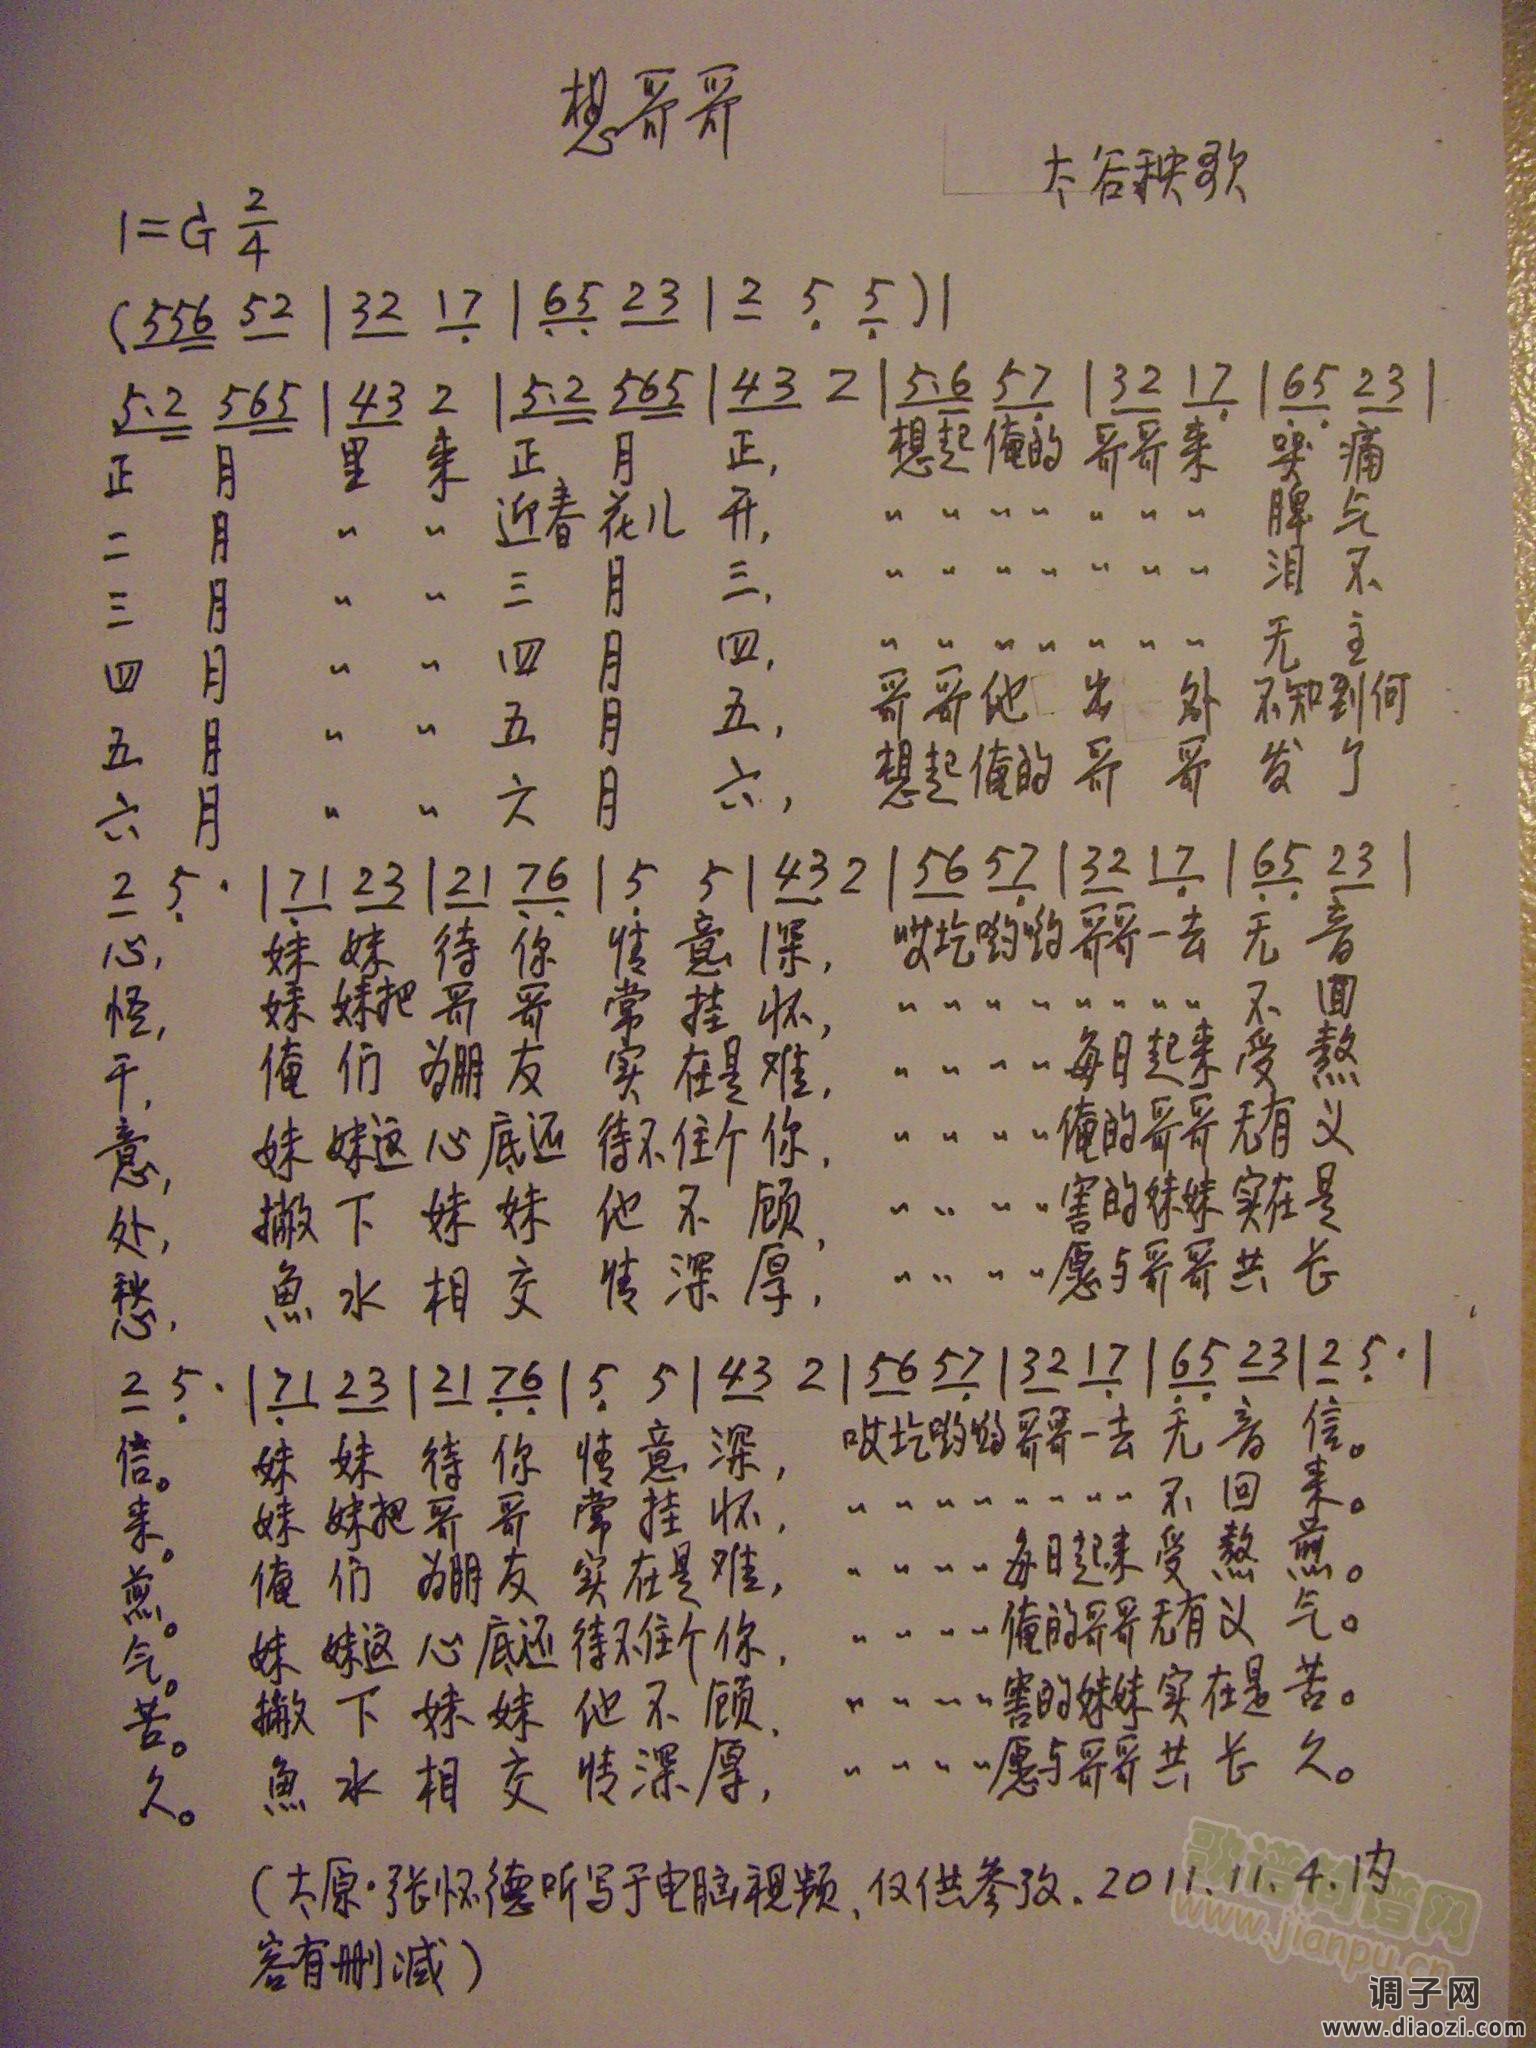 想哥哥
太谷秧歌
1=G 2/4
(556 52 | 32 17 | 65 23 | 2 5 5 )|
5.2 565 | 43 2 | 5.2 565 | 43 2 | 5.6 57 | 32 17 | 65 23 |
正 月 里 来 正 月 正, 想起俺的 哥哥来 哭 痛
二 月 〃 〃 迎春 花儿 开, 〃 〃 〃 〃 〃 〃 〃 脾 气
三 月 〃 〃 三 月 三, 〃 〃 〃 〃 〃 〃 〃 泪 不
四 月 〃 〃 四 月 四, 〃 〃 〃 〃 〃 〃 〃 无 主
五 月 〃 〃 五 月 五, 哥哥他 出 外 不知到何
六 月 〃 〃 六 月 六, 想起俺的 哥 哥 发 了
2 5 · | 71 23 | 21 76 | 5 5 | 43 2 | 56 57 | 32 17 | 65 23 |
心, 妹 妹 待 你 情 意 深, 哎圪哟哟 哥哥一去 无 音
怪, 妹 妹把 哥 哥 常 挂 怀, 〃 〃 〃 〃 〃 〃 〃 〃 不 回
干, 俺 们 为朋 友 实 在是 难, 〃 〃 〃 〃 每日起来 受 熬
意, 妹 妹这 心 底还 待不 住个 你, 〃 〃 〃 〃 俺的哥哥 无有 义
处, 撇 下 妹 妹 他 不 顾, 〃 〃 〃 〃 害的妹妹 实在是
愁, 魚 水 相 交 情 深 厚, 〃 〃 〃 〃 愿与哥哥 共 长
2 5 · | 71 23 | 21 76 | 5 5 | 43 2 | 56 57 | 32 17 | 65 23 | 2 5 · |
信。 妹 妹 待 你 情 意 深, 哎圪哟哟 哥哥一去 无 音 信。
来。 妹 妹把 哥 哥 常 挂 怀, 〃 〃 〃 〃 〃 〃 〃 〃 不 回 来。
煎。 俺 们 为朋 友 实 在是 难, 〃 〃 〃 〃 每日起来 受 熬 煎。
气。 妹 妹这 心 底还 待不住个 你, 〃 〃 〃 〃 俺的哥哥无有 义 气。
苦。 撇 下 妹 妹 他 不 顾, 〃 〃 〃 〃 害的妹妹 实 在是 苦。
久。 魚 水 相 交 情 深 厚, 〃 〃 〃 〃 愿与哥哥 共 长 久。
(太原·张怀德听写于电脑视频、仅供参考. 2011.11.4.内
容有删减)
歌谱简谱网
www.jianpu.cn
调子网
www.diaozi.com